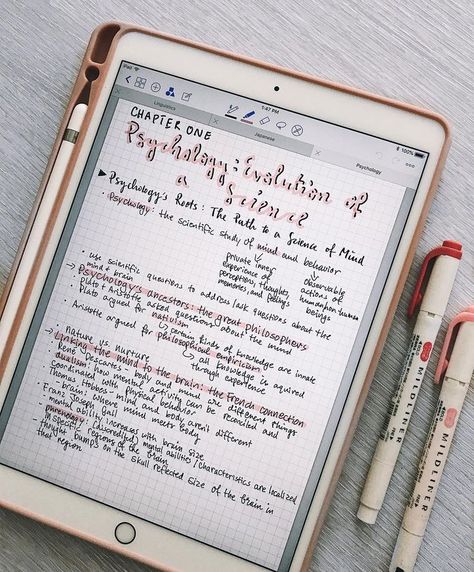 iPad
1:47 PM
100%
Linguistics
Japanese
Psychology
CHAPTER ONE
Psychology: Evolution of
a Science
▶ Psychology's Roots: The Path to a Science of Mind
• Psychology: the scientific study of mind and behavior
private inner experience of perceptions, thoughts, memories, and feelings
observable actions of human/nonhuman beings
• use scientific questions to address last questions about the mind + brain
→ Psychology's ancestors: the great philosophers
• Plato + Aristotle asked questions about the mind
• Plato argued for nativism
→ certain kinds of knowledge are innate
• Aristotle argued for philosophical empiricism
→ all knowledge is acquired through experience
• nature vs. nurture
→ Linking the mind to the brain: the French connection
• René Descartes - body and mind are different things
• dualism: how mental activity can be reconciled and coordinated with physical behavior
• Thomas Hobbes: mind and body aren't different
• brain: where mind meets body
• Franz Joseph Gall
• mental ability increases with brain size
• phrenology: (discredited) mental abilities/characteristics are localized in specific regions of the brain
• thought bumps on the skull reflected size of the brain in that region
MILDLINER
MILDLINER